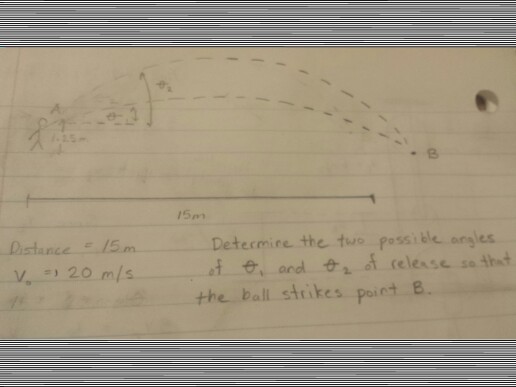 A
θ₂
θ
1.25m
B
15m
Distance = 15m
V₀ = 20 m/s
Determine the two possible angles
of θ₁ and θ₂ of release so that
the ball strikes point B.